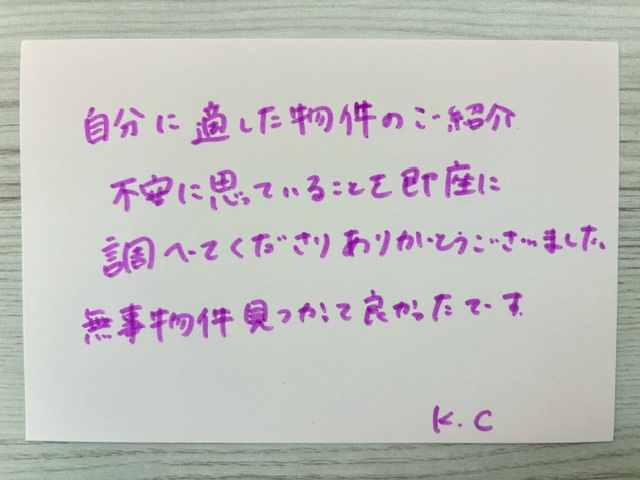 自分に適した物件のご紹介
不安に思っていることを即座に
調べてくださりありがとうございました。
無事物件見つかって良かったです
K.C